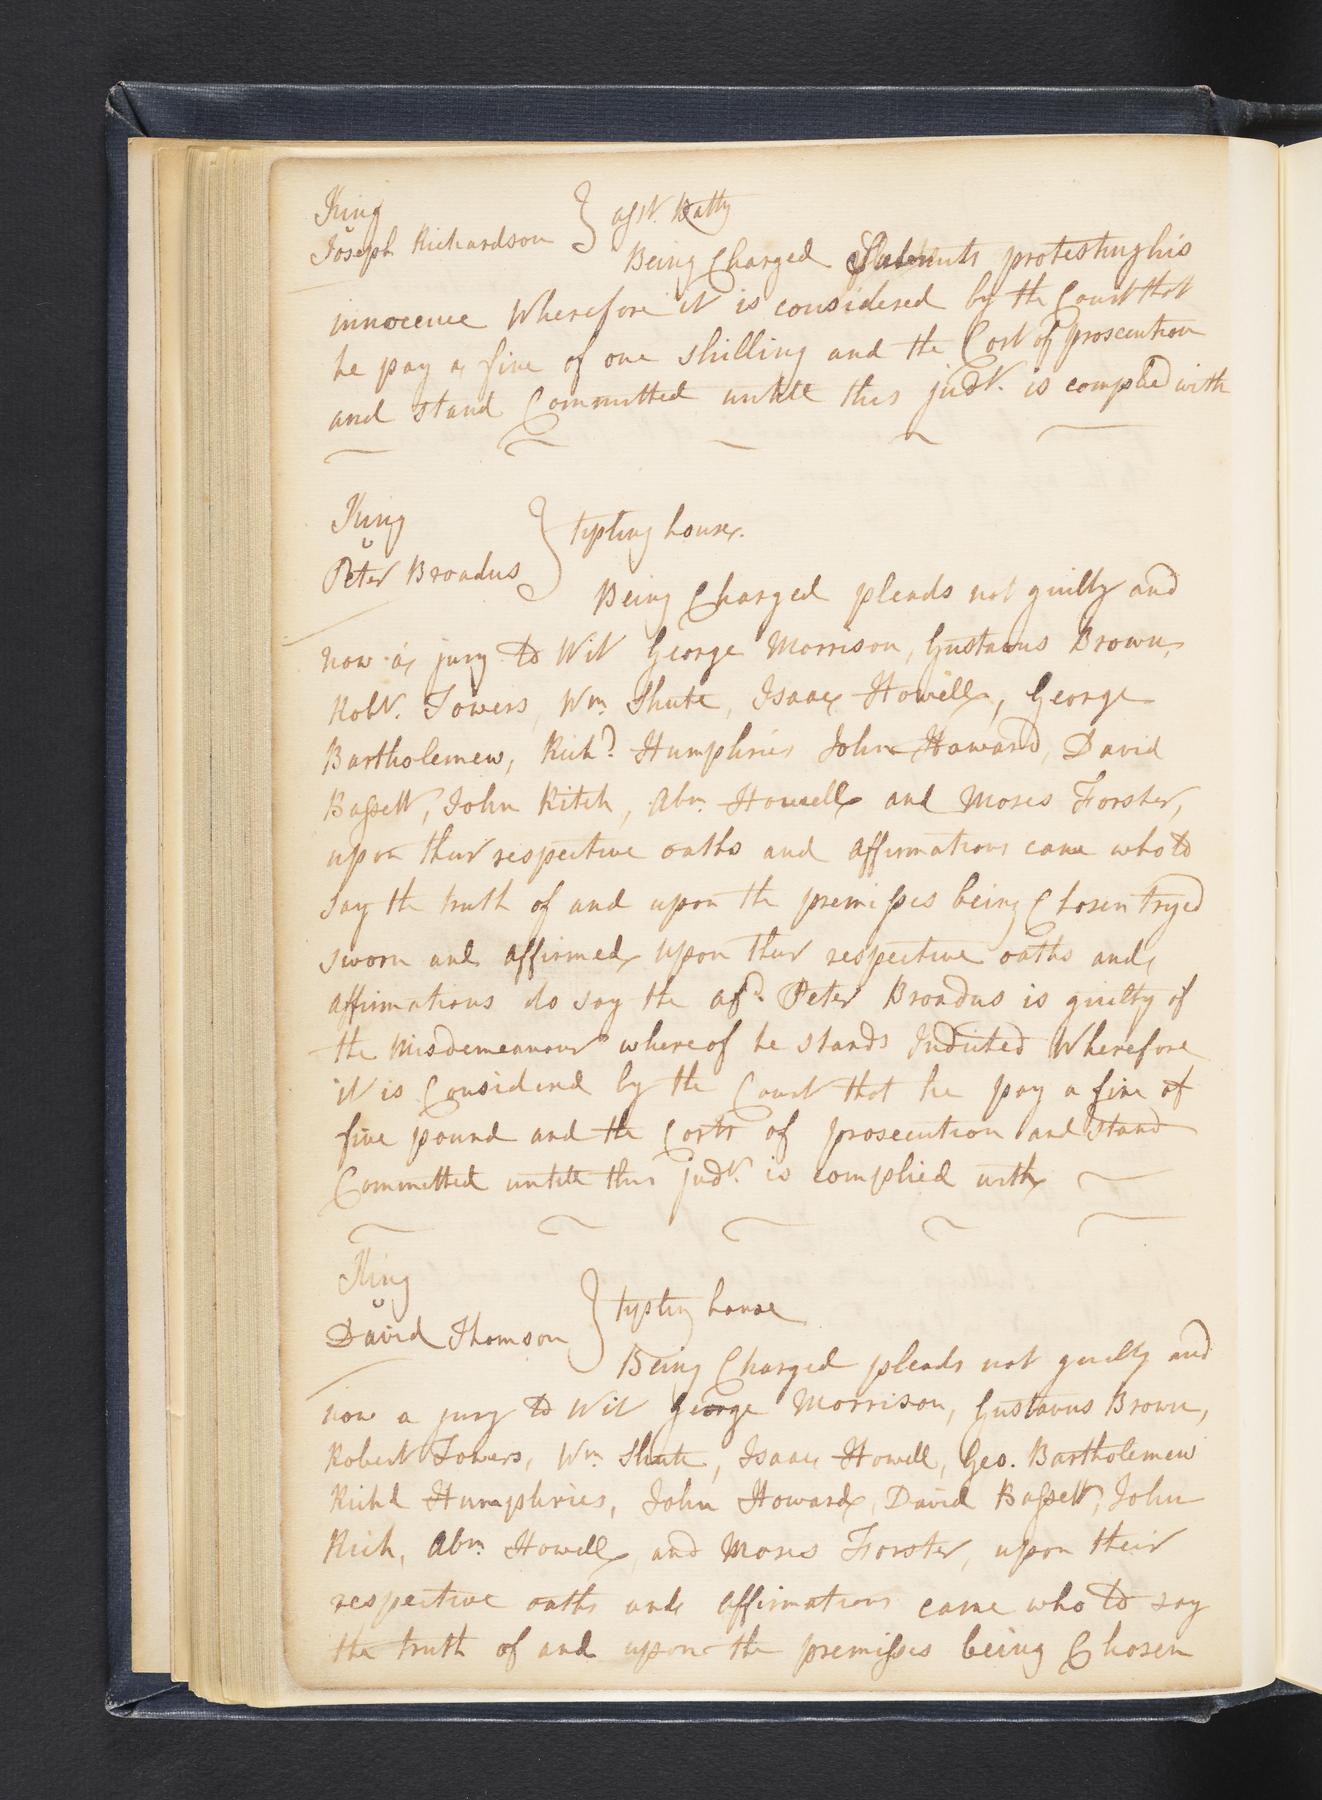 King
v
Joseph Richardson } asst. Batty
Being Charged Submits protesting his
innocence Wherefore it is considered by the Court that
he pay a fine of one shilling and the Cost of prosecution
and stand Committed untill this judt. is complied with
King
v
Peter Broadus } tipling house.
Being Charged pleads not guilty and
now a jury to Wit George Morrison, Gustavus Brown,
Robt. Towers, Wm. Shute, Isaac Howell, George
Bartholemew, Richd. Humphries John Howard, David
Bassett, John Ritch, Abm. Howell and Moses Forster,
upon their respective oaths and affirmations came who to
say the truth of and upon the premisses being Chosen tryed
sworn and affirmed upon their respective oaths and
affirmations do say the afsd. Peter Broadus is guilty of
the Misdemeanour whereof he stands Indicted Wherefore
it is Considered by the Court that he pay a fine of
five pound and the Costs of prosecution and stand
Committed untill this judt. is complied with
King
v
David Thomson } tipling house
Being Charged pleads not guilty and
now a jury to Wit George Morrison, Gustavus Brown,
Robert Towers, Wm. Shute, Isaac Howell, Geo. Bartholemew
Richd Humphries, John Howard, David Bassett, John
Rich, Abm. Howell, and Moses Forster, upon their
respective oaths and affirmations came who to say
the truth of and upon the premisses being Chosen